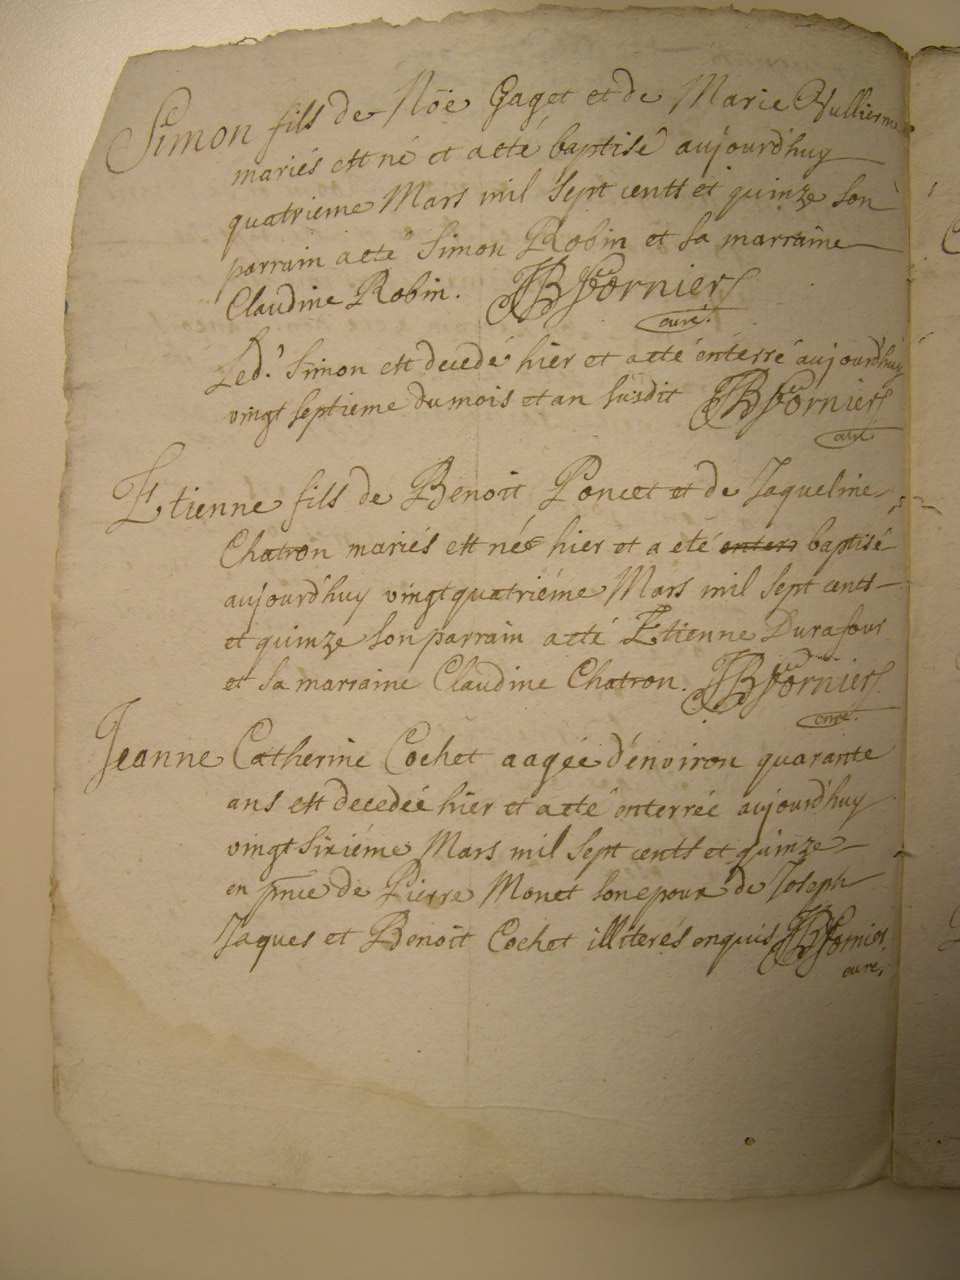 Simon fils de Nöe Gaget et de Marie Vullierme
mariés est né et a eté baptisé aujourd'huy
quatrieme Mars mil sept cents et quinze son
parrain a eté Simon Robin et sa marraine
Claudine Robin. JB Fornier
curé.
Led.t Simon est decedé hier et a eté enterré aujourd'huy
vingt septieme du mois et an susdit JB Fornier
curé
Etienne fils de Benoit Poncet et de Jaqueline
Chatron mariés est né hier et a eté enterr baptisé
aujourd'huy vingtquatriéme Mars mil sept cents
et quinze son parrain a eté Etienne Durafour
et sa marraine Claudine Chatron. JB Fornier
curé.
Jeanne Catherine Cochet aagée d'environ quarante
ans est decedée hier et a eté enterrée aujourd'huy
vingt sixiéme Mars mil sept cents et quinze
en pnce de Pierre Monet son epoux de Joseph
Jaques et Benoit Cochet illiteres enquis JB Fornier
curé,